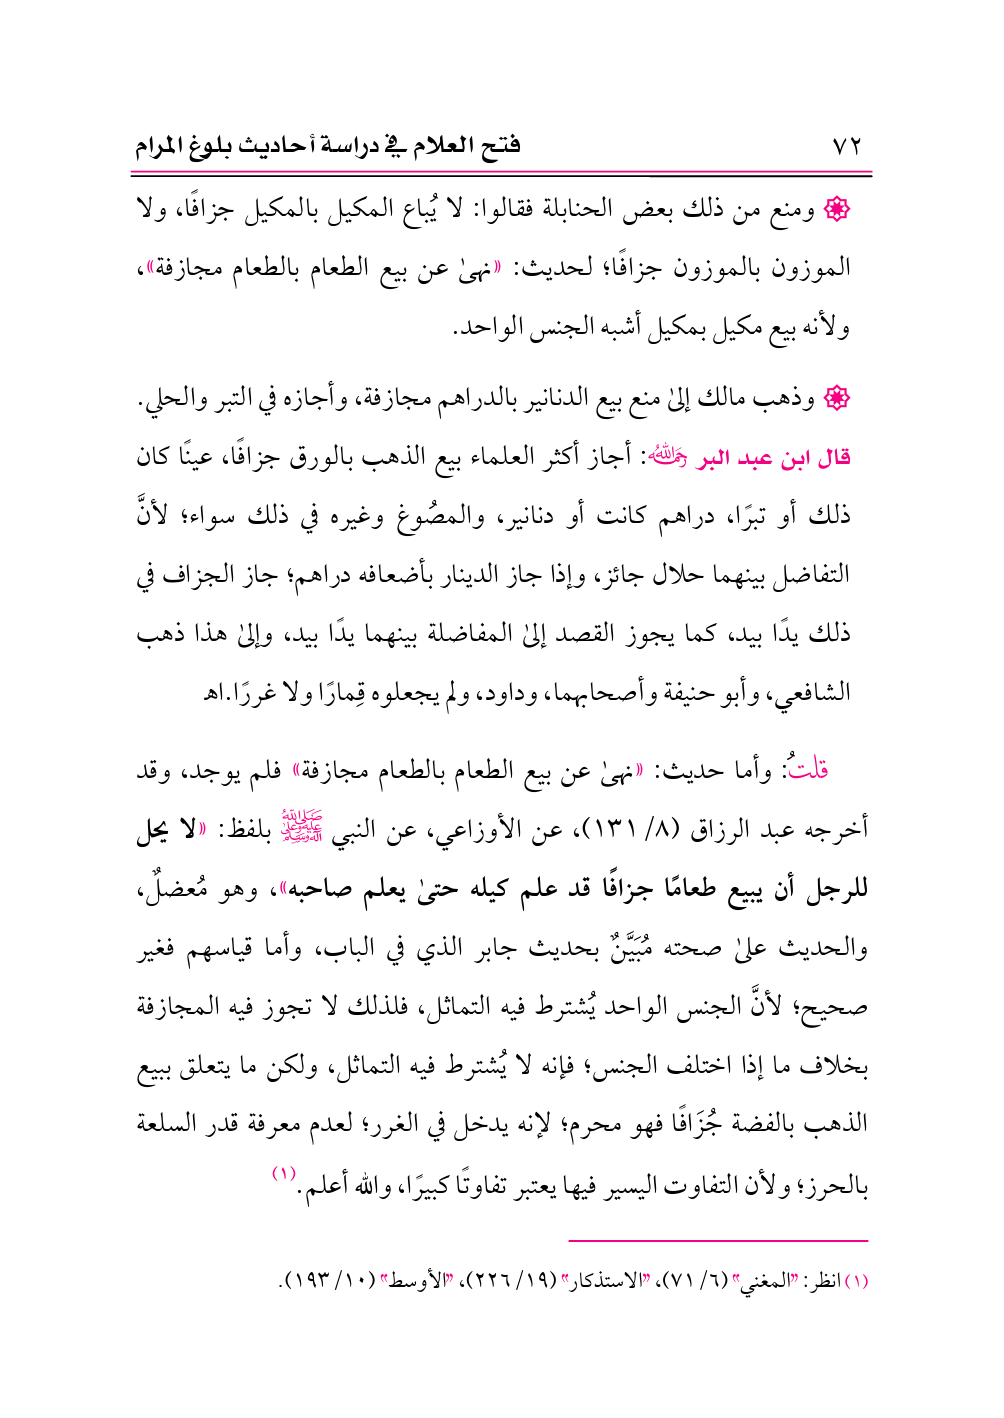 ٧٢ فتح العلام في دراسة أحاديث بلوغ المرام
ومنع من ذلك بعض الحنابلة فقالوا: لا يُباع المكيل بالمكيل جزافًا، ولا
الموزون بالموزون جزافًا؛ لحديث: «نهىٰ عن بيع الطعام بالطعام مجازفة»،
ولأنه بيع مكيل بمكيل أشبه الجنس الواحد.
وذهب مالك إلىٰ منع بيع الدنانير بالدراهم مجازفة، وأجازه في التبر والحلي.
قال ابن عبد البر رحمه الله: أجاز أكثر العلماء بيع الذهب بالورق جزافًا، عينًا كان
ذلك أو تبرًا، دراهم كانت أو دنانير، والمصُوغ وغيره في ذلك سواء؛ لأنَّ
التفاضل بينهما حلال جائز، وإذا جاز الدينار بأضعافه دراهم؛ جاز الجزاف في
ذلك يدًا بيد، كما يجوز القصد إلىٰ المفاضلة بينهما يدًا بيد، وإلىٰ هذا ذهب
الشافعي، وأبو حنيفة وأصحابهما، وداود، ولم يجعلوه قِمارًا ولا غررًا.اهـ
قلتُ: وأما حديث: «نهىٰ عن بيع الطعام بالطعام مجازفة» فلم يوجد، وقد
أخرجه عبد الرزاق (٨/ ١٣١)، عن الأوزاعي، عن النبي ﷺ بلفظ: «لا يحل
للرجل أن يبيع طعامًا جزافًا قد علم كيله حتىٰ يعلم صاحبه»، وهو مُعضلٌ،
والحديث علىٰ صحته مُبَيَّنٌ بحديث جابر الذي في الباب، وأما قياسهم فغير
صحيح؛ لأنَّ الجنس الواحد يُشترط فيه التماثل، فلذلك لا تجوز فيه المجازفة
بخلاف ما إذا اختلف الجنس؛ فإنه لا يُشترط فيه التماثل، ولكن ما يتعلق ببيع
الذهب بالفضة جُزَافًا فهو محرم؛ لإنه يدخل في الغرر؛ لعدم معرفة قدر السلعة
بالحرز؛ ولأن التفاوت اليسير فيها يعتبر تفاوتًا كبيرًا، والله أعلم.(١)
(١) انظر: "المغني" (٦/ ٧١)، "الاستذكار" (١٩/ ٢٢٦)، "الأوسط" (١٠/ ١٩٣).